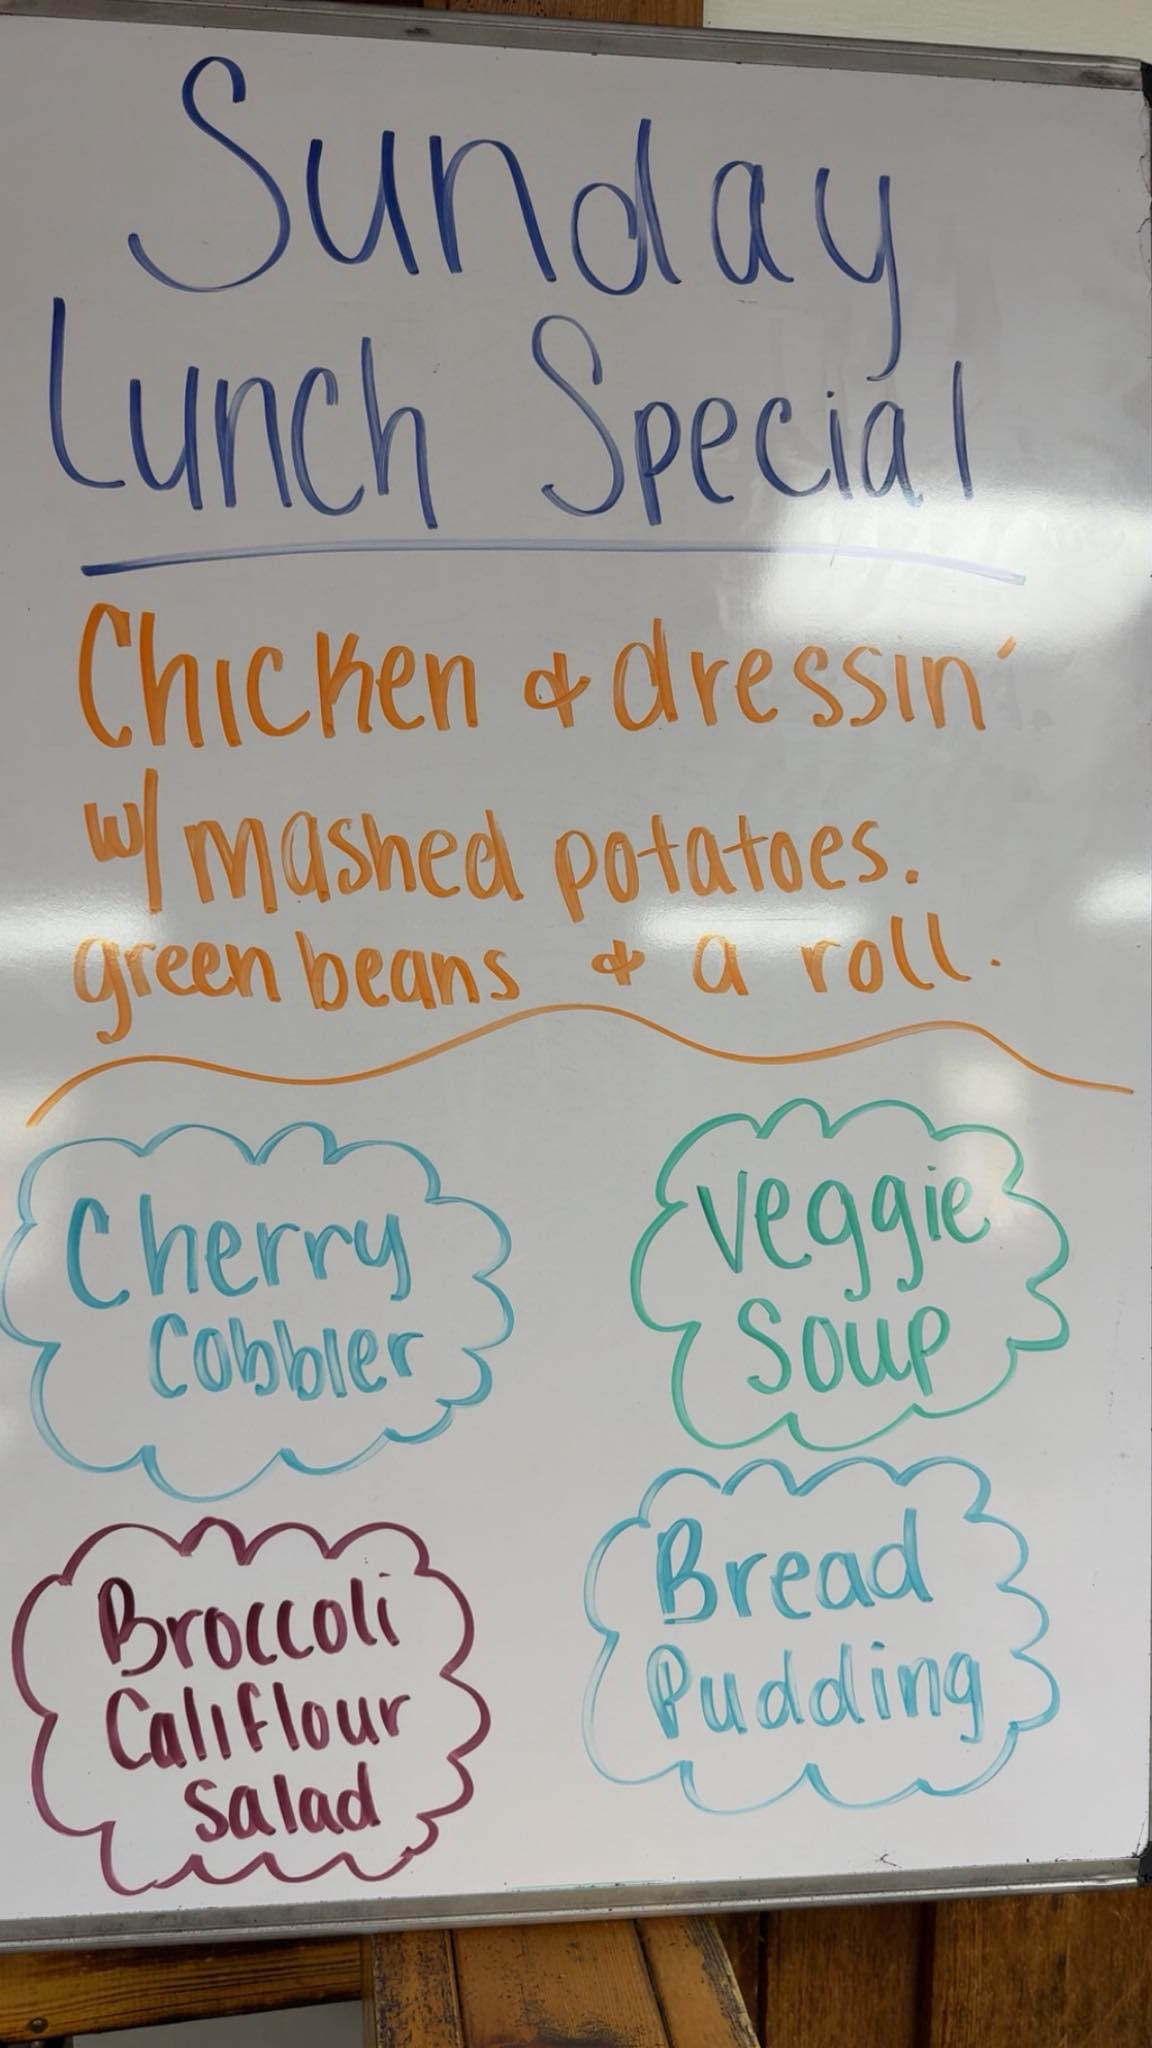 Sunday
Lunch Special
Chicken & dressin'
w/ mashed potatoes.
green beans & a roll.
Cherry
Cobbler
Veggie
Soup
Broccoli
Califlour
Salad
Bread
Pudding